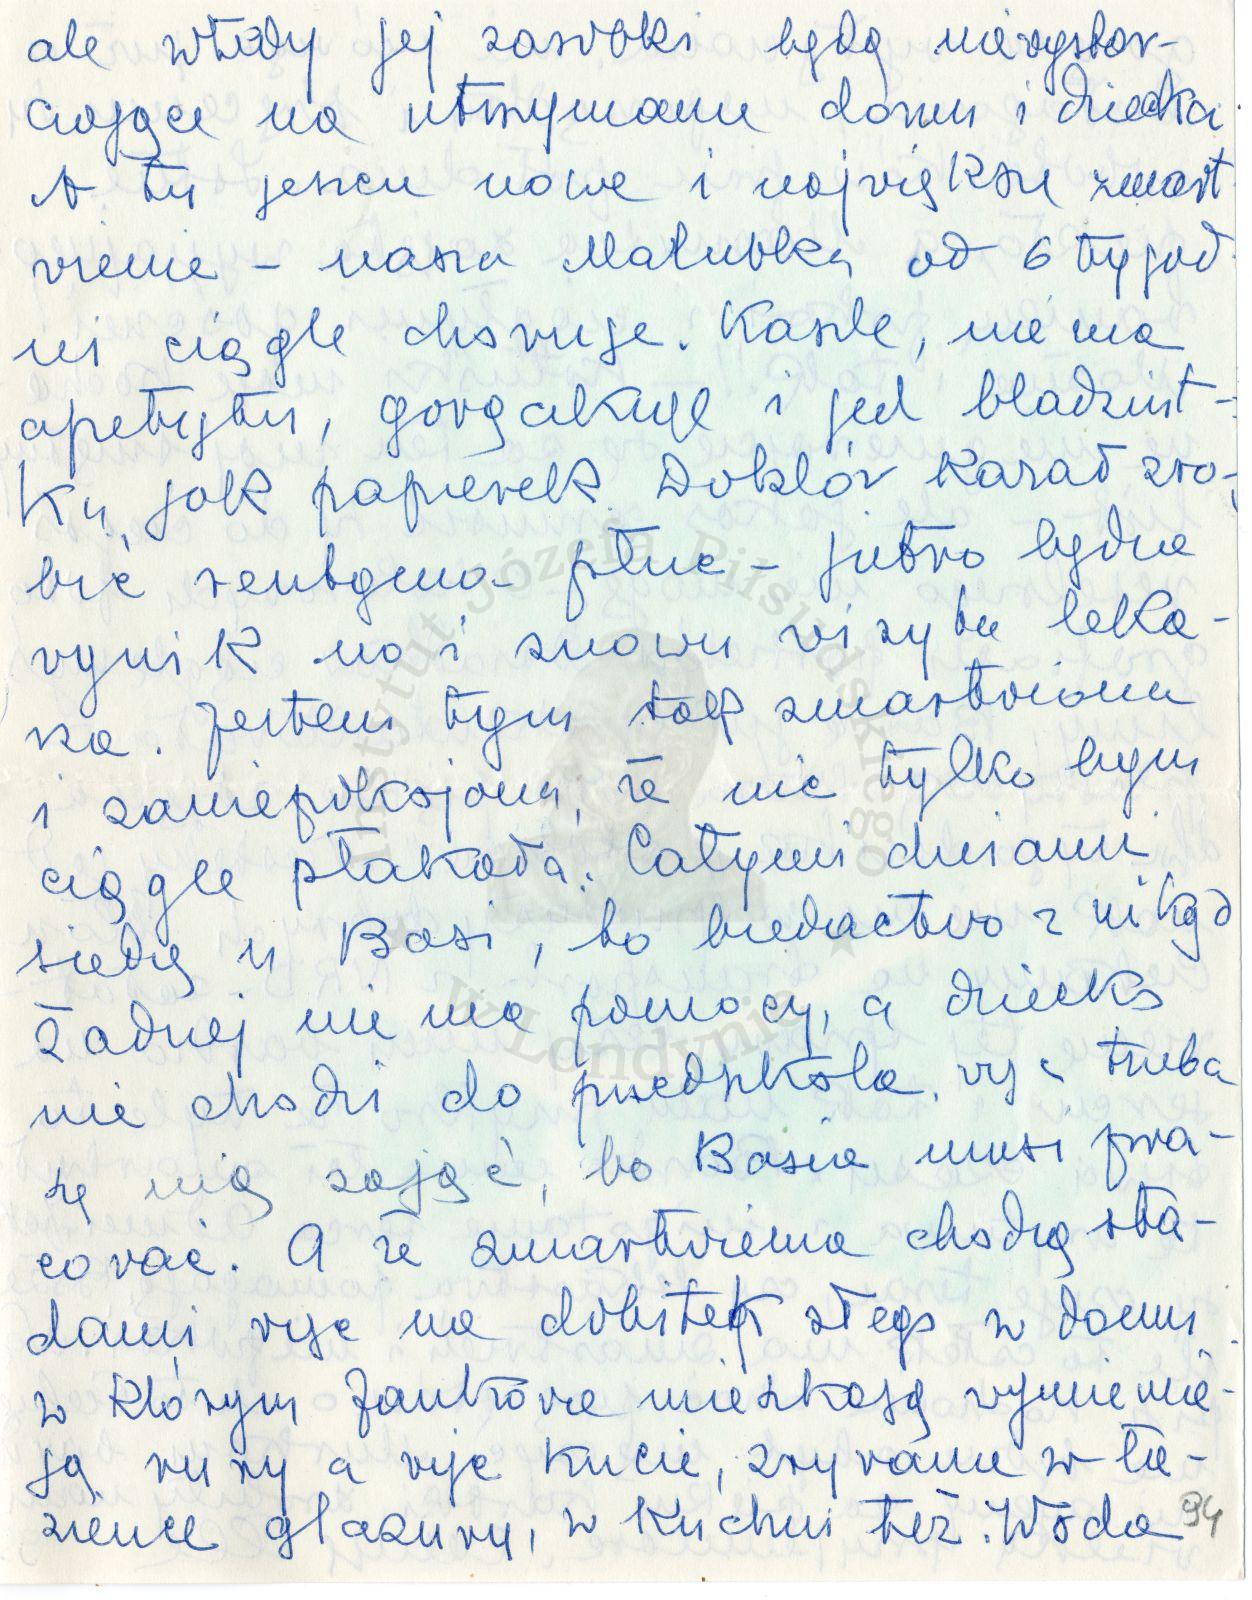 ale wtedy jej zarobki będą niewystar-
czające na utrzymanie domu i dziecka
A tu jeszcze nowe i największe zmart
wienie - nasza Matuska od 6 tygod
ni ciągle choruje. Kaszle, nie ma
apetytu, gorączkuje i jest bladziut-
ka, jak papierek. Doktór kazał zro-
bić rentgena płuc - jutro będzie
wynik no i znowu wizyta leka-
rza. Jestem tym tak zmartwiona
i zaniepokojona, że nic tylko bym
ciągle płakała. Całymi dniami
siedzę u Basi, bo biedactwo z nikąd
żadnej nie ma pomocy, a dziecko
nie chodzi do przedszkola, więc trzeba
się nią zająć, bo Basia musi pra-
cować. A że zmartwienia chodzą sta-
dami, więc na dobitek złego w domu
w którym Jankowie mieszkają wymienia-
ją rury a więc kucie, zrywanie w ła-
zience glazury, w kuchni też. Woda
94
Instytut Józefa Piłsudskiego
w Londynie